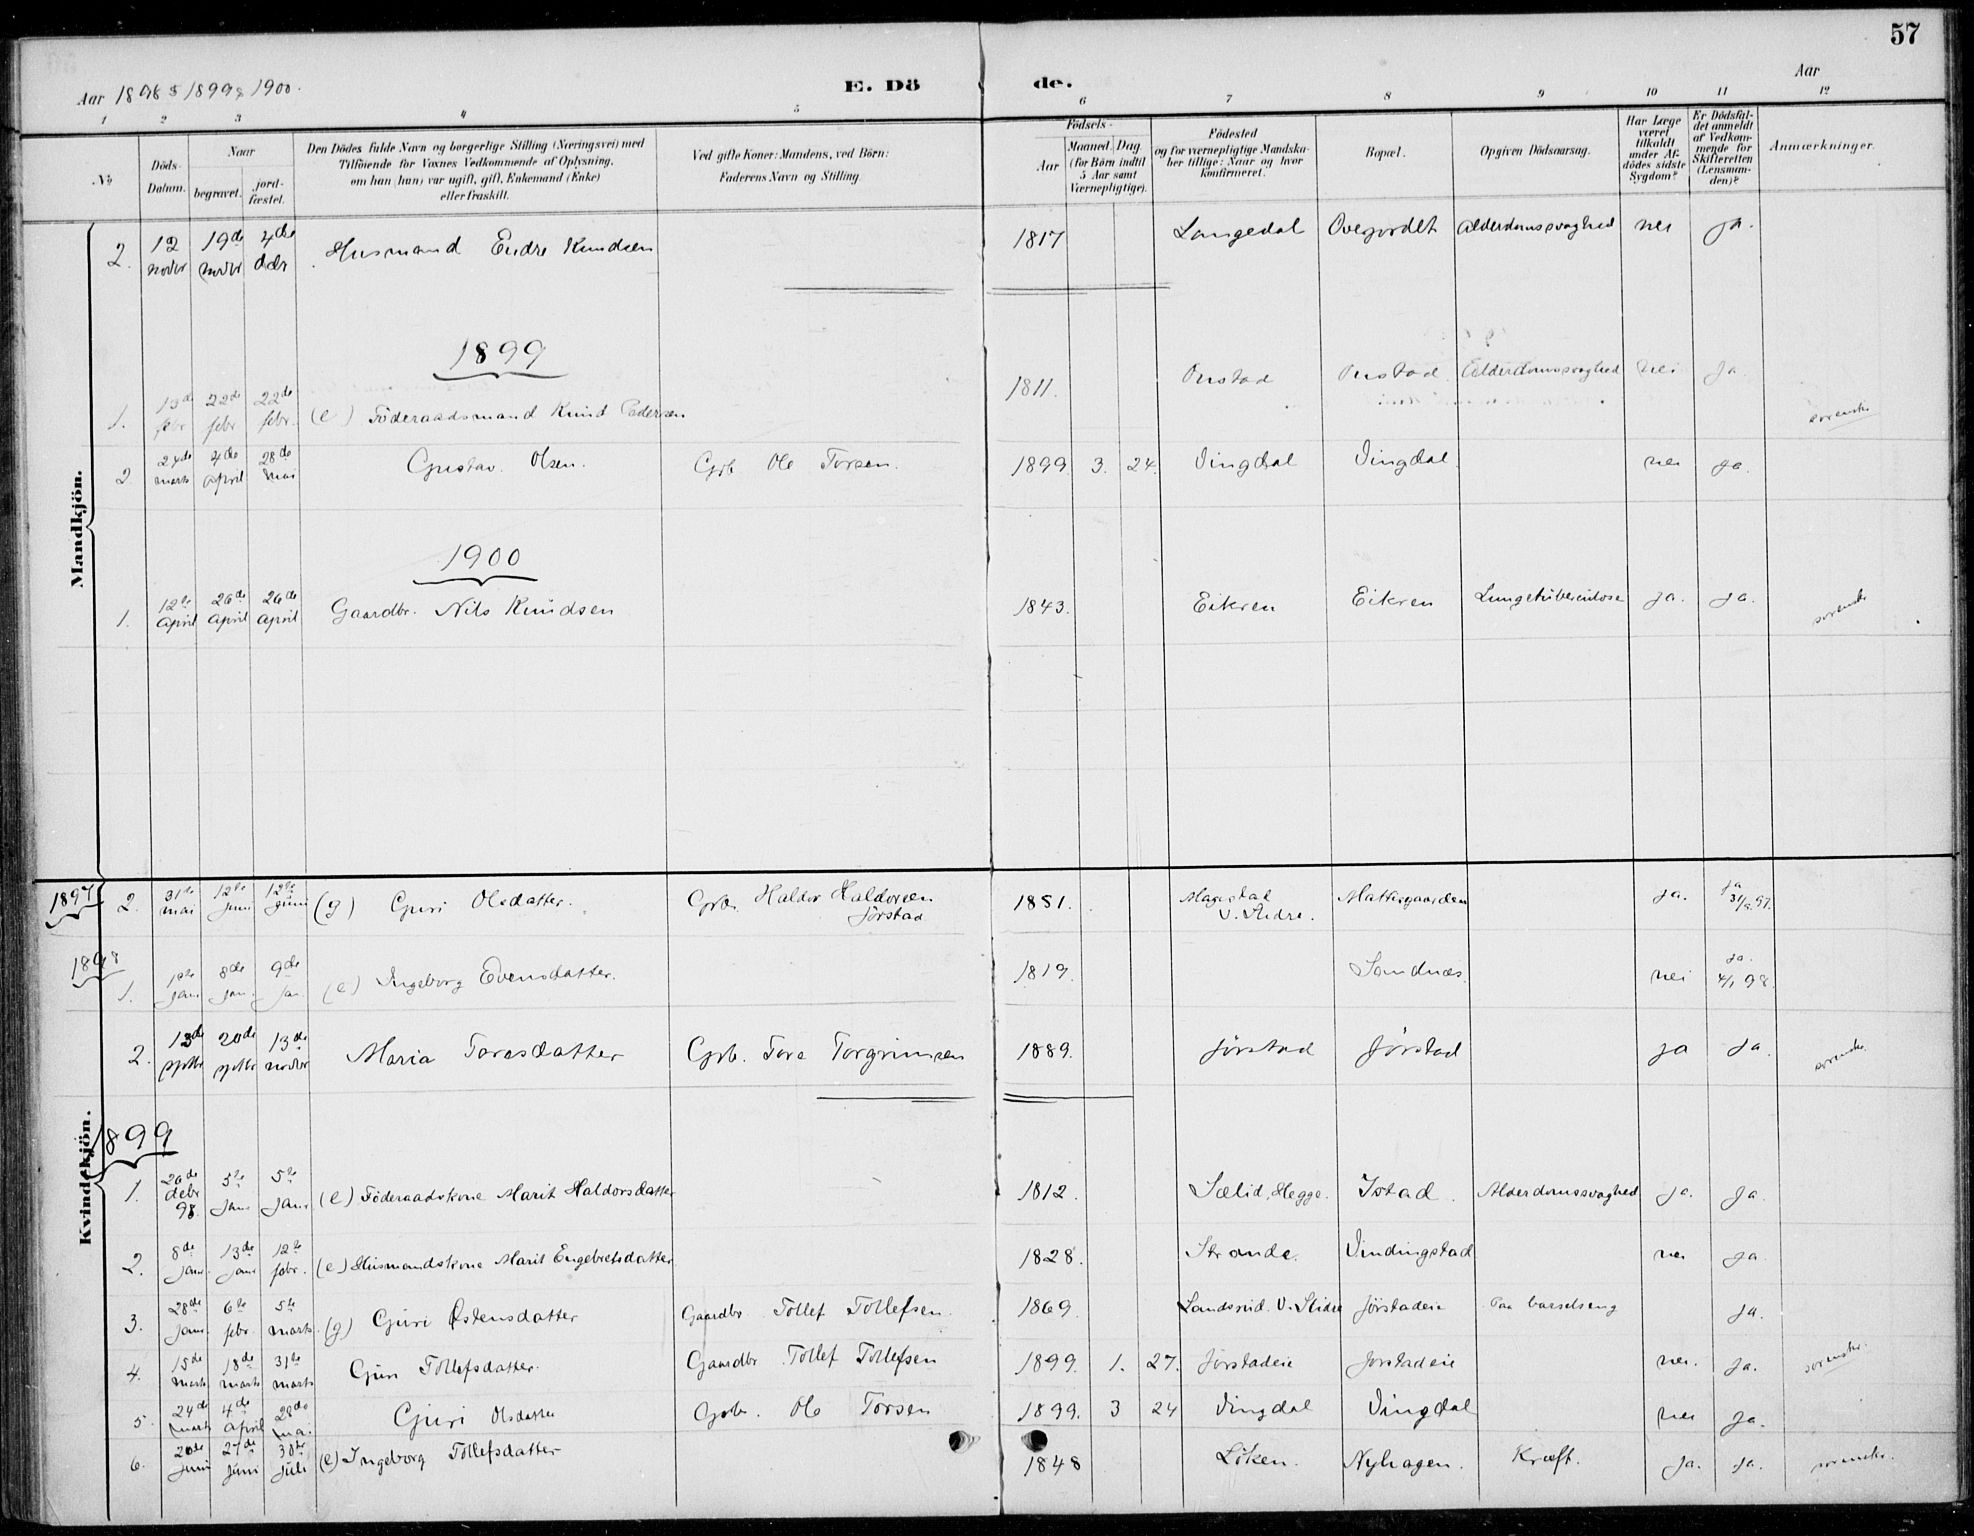 57
Aar 1898 & 1899 & 1900.
E. Dö de.
Aar
1 2 3 4 5 6 7 8 9 10 11 12
No
Döds-Datum.
Naar
begravet.
jord-fæstet.
Den Dödes fulde Navn og borgerlige Stilling (Næringsvei) med
Tilföiende for Voxnes Vedkommende af Oplysning,
om han (hun) var ugift, gift, Enkemand (Enke)
eller fraskilt.
Ved gifte Koner: Mandens, ved Börn:
Faderens Navn og Stilling.
Födsels-
Aar
Maaned. Dag
(for Börn indtil
5 Aar samt
Værnepligtige).
Födested
og for værnepligtige Mandska-
ber tillige: Naar og hvor
konfirmeret.
Bopæl.
Opgiven Dödsaarsag.
Har Læge
været
tilkaldt
under Af-
dödes sidste
Sygdom?
Er Dödsfal-
det anmeldt
af Vedkom-
mende for
Skifteretten
(Lensman-
den)?
Anmærkninger.
Mandkjön.
2. 12 novbr 19de novbr 4de dcbr Husmand Endre Knudsen 1817 Langedal Overjordet Alderdomssvaghed nei ja.
1899
1. 13de febr 22de febr 22de febr. (e) Föderaadsmand Knud Pedersen 1811. Onstad Onstad Alderdomssvaghed nei Ja
2 24de marts 4de april 28de mai Gustav Olsen. Grb Ole Torsen. 1899 3. 24. Vingdal Vingdal nei ja.
1900
1. 12te April 26de April 26de April Gaardbr. Nils Knudsen 1843. Eikren Eikren Lungetuberculose ja. ja.
1897
2. 31te mai 12te juni 12te juni (g) Guri Olsdatter. Grb. Haldor Haldorsen Jörstad 1851. Magistad V. Slidre. Mattisgaarden ja. ja 31/5 97.
1898
1. 1ste jan 8de jan. 9de jan (e) Ingeborg Evensdatter. 1819. Sandnæs nei ja. 4/1 98.
2. 13de septbr 20de septbr 13de novbr Maria Toresdatter Grb. Tore Torgrimsen 1889. Jörstad Jörstad ja Ja.
Kvindekjön.
1899
1. 26de debr 98. 5te Jan. 5te Jan. (e) Föderaadskone Marit Haldorsdatter 1812. Sælid, Hegge. Istad. Alderdomssvaghed ja. Ja.
2. 8de Jan. 13de Jan 12te febr. (e) Husmandskone Marit Engebretsdatter 1828. Strande. Vindingstad nei ja.
3. 28de Jan. 6te febr. 5te marts. (g) Guri Östensdatter Gaardbr Tollef Tollefsen. 1869. Landsrud. V. Slidre Jörstadeie Paa barselseng ja.
4. 15de marts 18de marts 31te marts Guri Tollefsdatter. Gaardbr Tollef Tollefsen 1899. 1. 27. Jörstadeie Jörstadeie nei. Ja.
5. 24de marts 4de april 28de mai Guri Olsdatter Grb. Ole Torsen 1899. 3 24 Vingdal Vingdal nei Ja.
6. 20de juni 27de juni 30te juli (e) Ingeborg Tollefsdatter 1848 Löken. Nyhagen. Kræft. Ja. Ja.